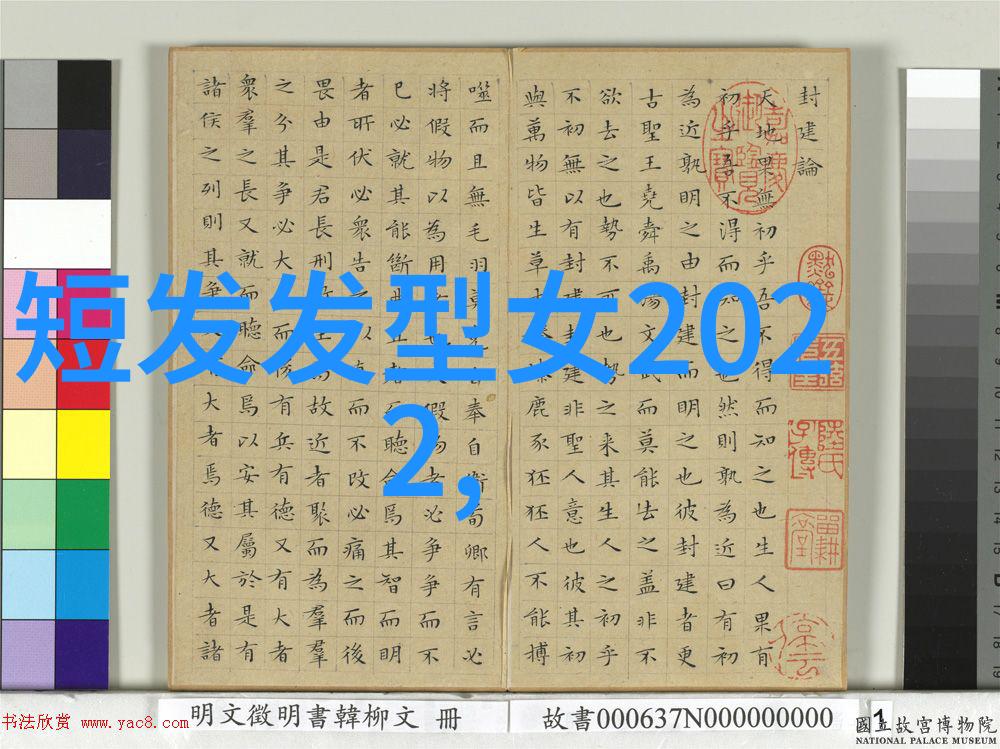 短发发型女202
2,
封建論
天地果無初乎吾不得而知之也生人果有
初乎吾不得而知之也然則孰為近曰有初
為近孰明之由封建而明之也彼封建者更
古聖王堯舜禹湯文武而莫能去之盖非不
欲去之也勢不可也勢之来其生人之初乎
不初無以有封建封建非聖人意也彼其初
與萬物皆生草木榛榛鹿豕狉狉人不能搏
噬而且無毛羽莫克自奉自衛荀卿有言必
將假物以為用者也夫假物者必争争而不
已必就其能斷曲直者而聽命焉其智而明
者所伏必衆告之以直而不改必痛之而後
畏由是君長刑政生焉故近者聚而為羣
之分其争必大大而後有兵有德又有大者
衆羣之長又就而聽命焉以安其屬於是有
諸侯之列則其争又有大者焉德又大者諸
明文徵明書韓柳文 冊
故書000637N000000000
1
书法欣赏 www.yac8.com
國立故宮博物院
NATIONAL PALACE MUSEUM